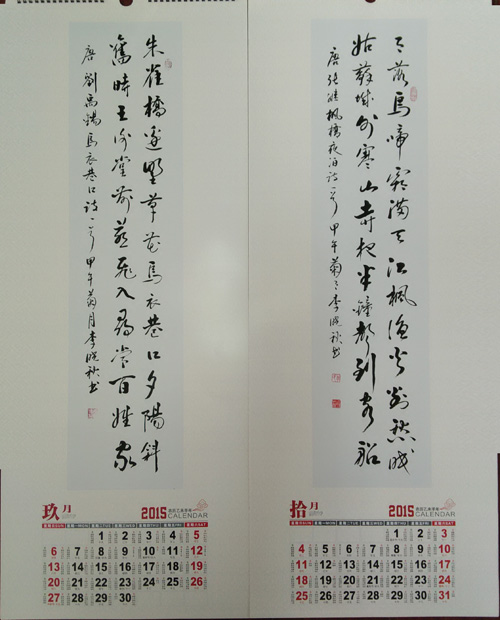 朱雀橋邊野草花烏衣巷口夕陽斜
舊時王謝堂前燕飛入尋常百姓家
唐劉禹錫烏衣巷口詩一首甲午菊月李曉秋書
玖月
2015
CALENDAR
1 2 3 4 5
6 7 8 9 10 11 12
13 14 15 16 17 18 19
20 21 22 23 24 25 26
27 28 29 30
月落烏啼霜滿天江楓漁火對愁眠
姑蘇城外寒山寺夜半鐘聲到客船
唐張繼楓橋夜泊詩一首甲午菊月李曉秋書
拾月
2015
CALENDAR
1 2 3
4 5 6 7 8 9 10
11 12 13 14 15 16 17
18 19 20 21 22 23 24
25 26 27 28 29 30 31